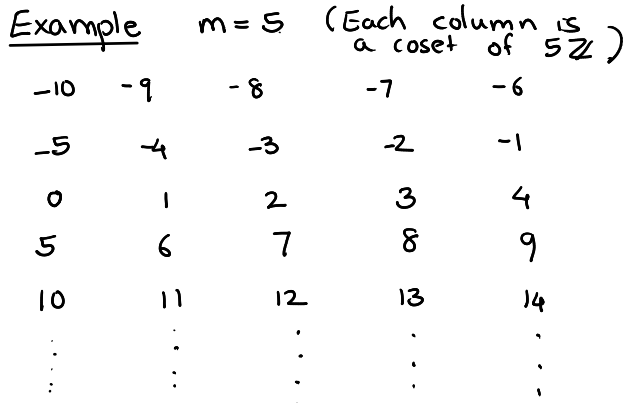 Example m = 5 (Each column is
a coset of 5ℤ)
-10 -9 -8 -7 -6
-5 -4 -3 -2 -1
0 1 2 3 4
5 6 7 8 9
10 11 12 13 14
⋮ ⋮ ⋮ ⋮ ⋮